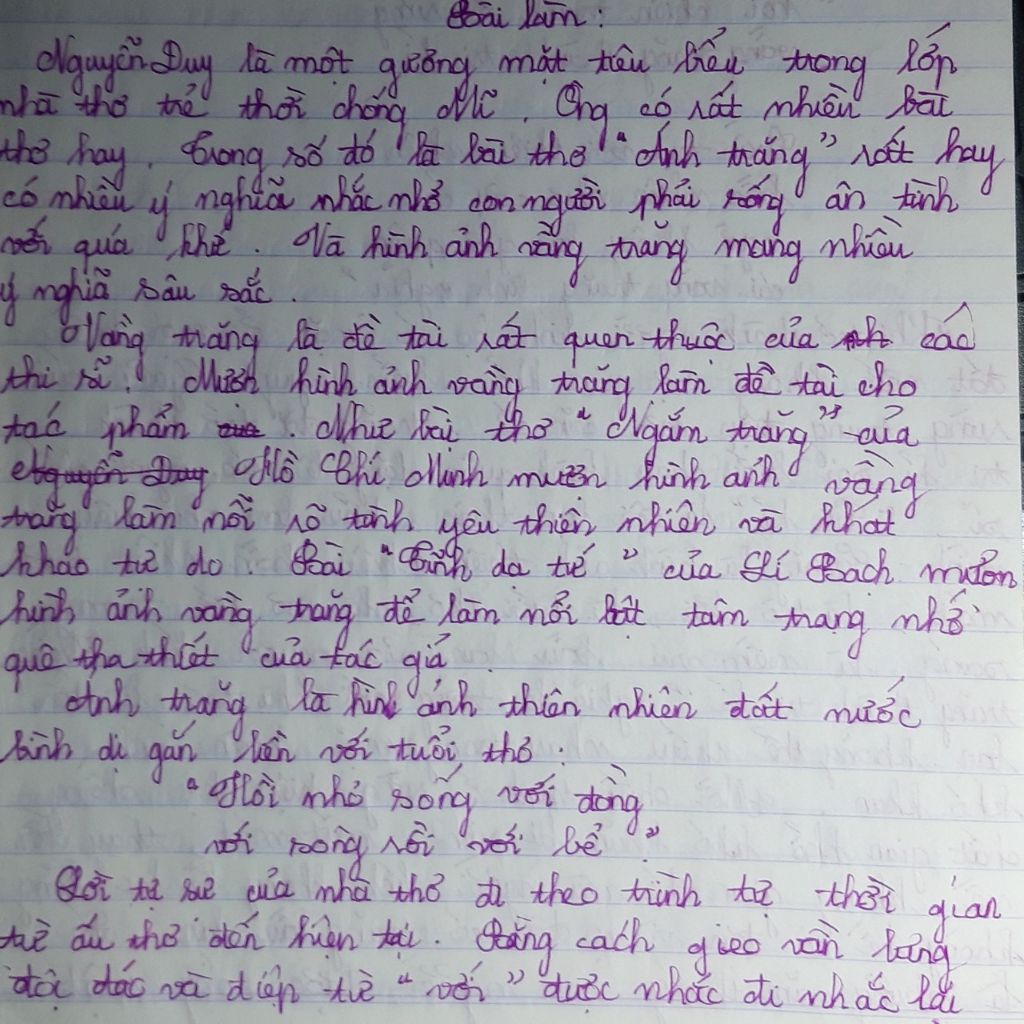 Bài làm:
Nguyễn Duy là một gương mặt tiêu biểu trong lớp
nhà thơ trẻ thời chống Mĩ. Ông có rất nhiều bài
thơ hay. Trong số đó là bài thơ "Ánh trăng" rất hay
có nhiều ý nghĩa nhắc nhở con người phải sống ân tình
với quá khứ. Và hình ảnh vầng trăng mang nhiều
ý nghĩa sâu sắc.
Vầng trăng là đề tài rất quen thuộc của nh các
thi sĩ. Mượn hình ảnh vầng trăng làm đề tài cho
tác phẩm của. Như bài thơ "Ngắm trăng" của
Nguyễn Duy Hồ Chí Minh mượn hình ảnh vầng
trăng làm nỗi rõ tình yêu thiên nhiên và khát
khao tự do. Bài "Tĩnh dạ tứ" của Lí Bạch mượn
hình ảnh vầng trăng để làm nổi bật tâm trạng nhớ
quê tha thiết của tác giả.
Ánh trăng là hình ảnh thiên nhiên đất nước
bình dị gắn liền với tuổi thơ.
"Hồi nhỏ sống với đồng
với sông rồi với bể"
Lời tự sự của nhà thơ đi theo trình tự thời gian
từ ấu thơ đến hiện tại. Bằng cách gieo vần lưng
độc đác và điệp từ "với" được nhắc đi nhắc lại